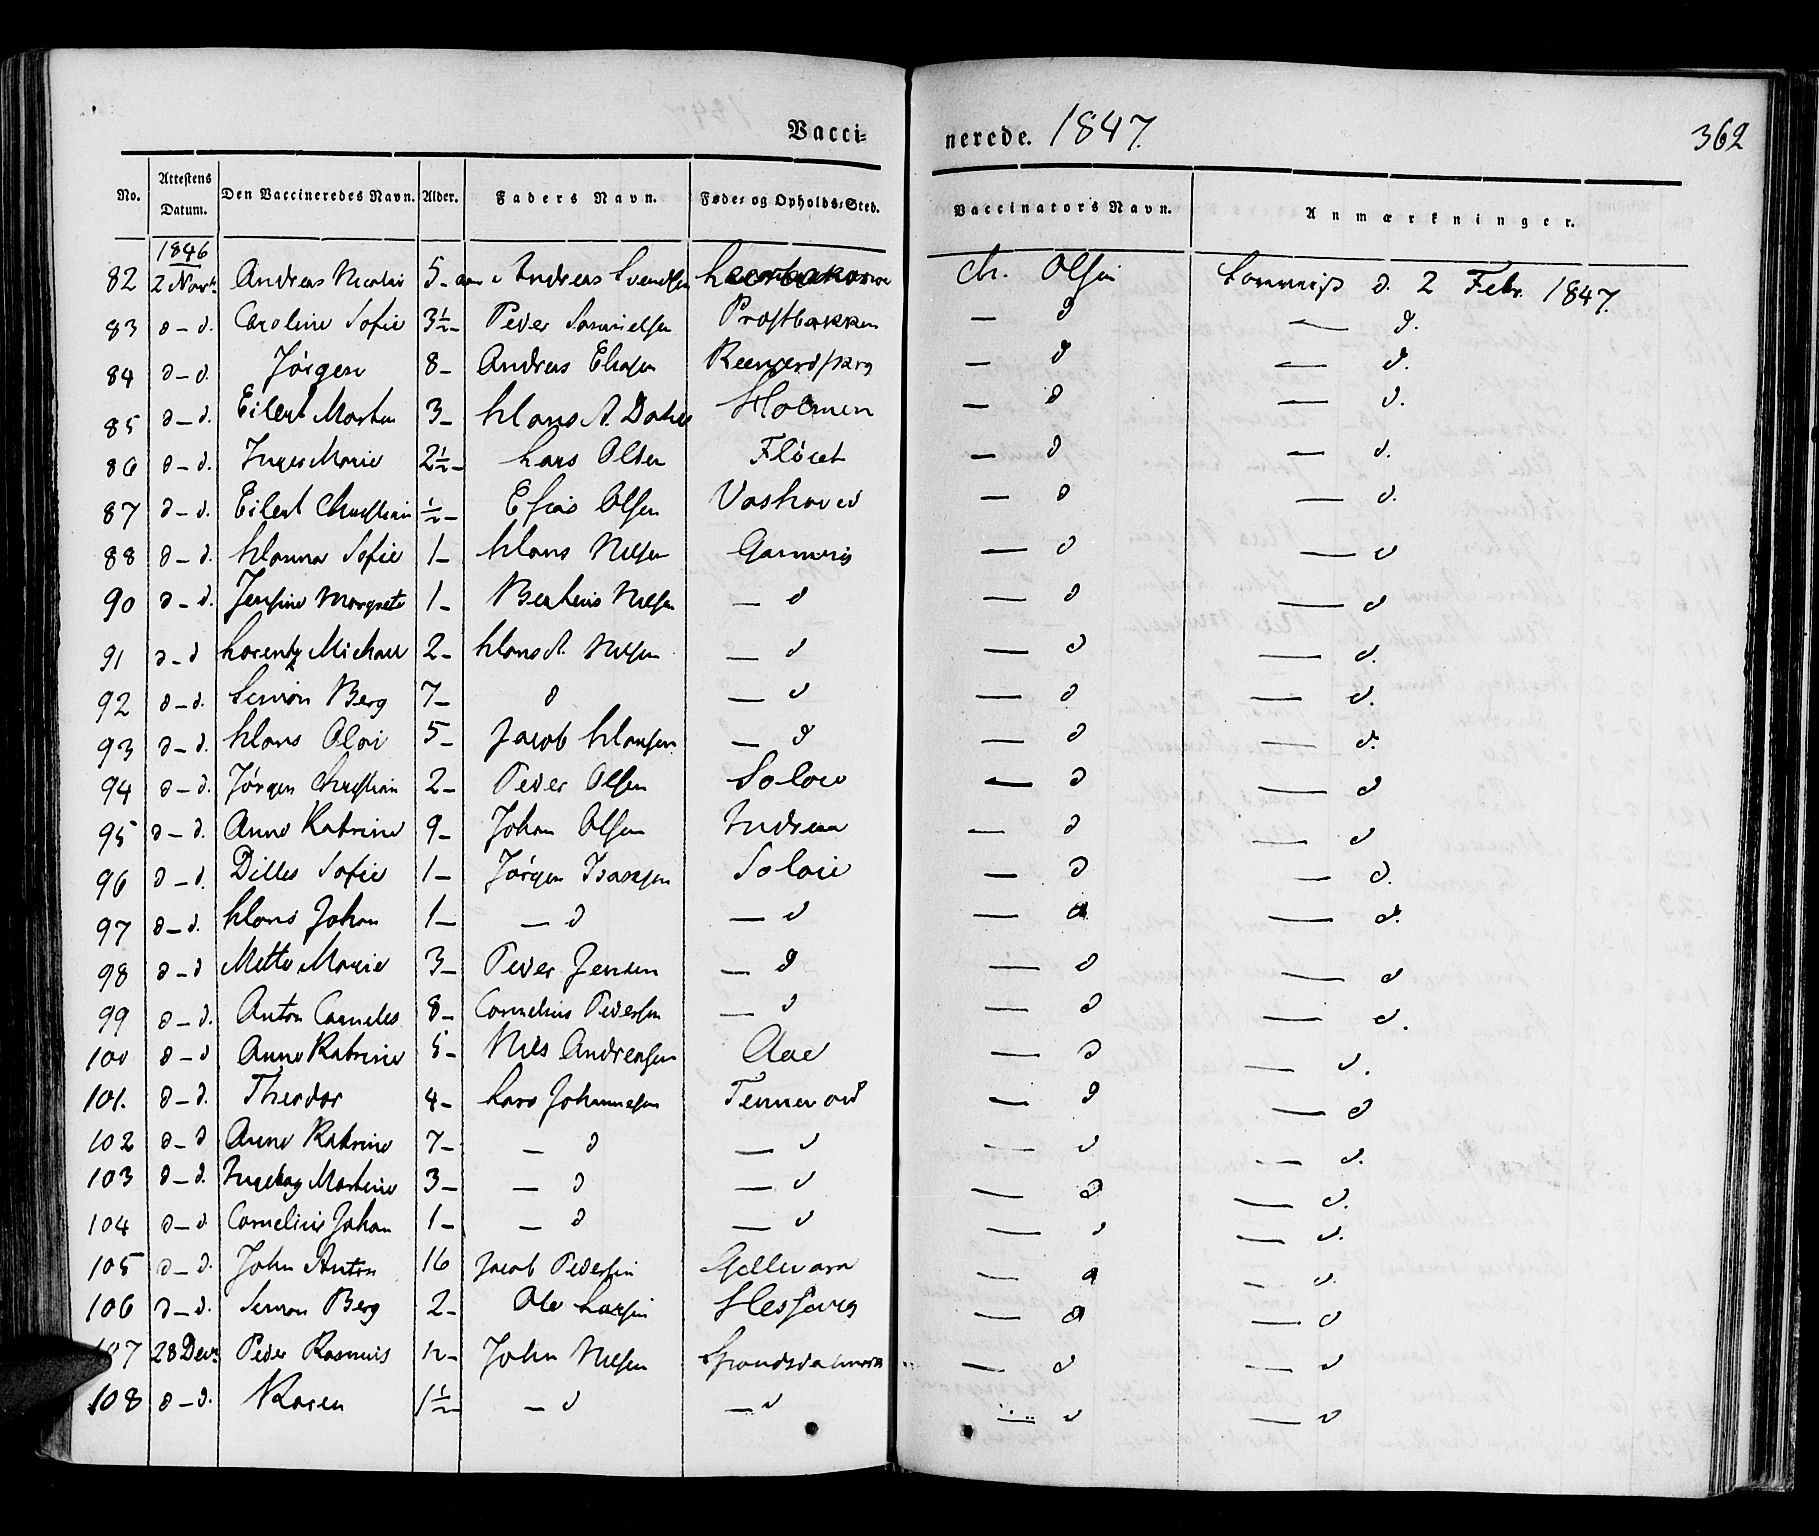 Vacci= nerede. 1847. 362
No. Attestens Datum. Den Vaccineredes Navn. Alder. Faders Navn. Føde- og Opholds-Sted. Vaccinators Navn. Anmærkninger.
1846
82 2 Novb. Andreas Nicolai 5 Andreas Svendsen Ch. Olsen d. 2 Febr. 1847.
83 d – d. Caroline Sofie 3½ – Peder Samuelsen Prostbakken — d — d.
84 d – d. Jørgen 8 – Andreas Eliasen — d — d.
85 d – d. Eilert Morten 3 – Hans A. Holmen — d — d.
86 d – d. Inger Marie 2½ – Lars Olsen — d — d.
87 d – d. Eilert Christian ½ – Esias Olsen — d — d.
88 d – d. Hanna Sofie 1 – Hans Nilsen — d — d
90 d – d. Jensine Margrete 1 – Berteus Nilsen — d — d — d
91 d – d Lorentz Michael 2 – Hans A. Nilsen — d — d — d.
92 d – d. Simon Berg 7 – d — d — d — d.
93 d – d. Hans Olai 5 – Jacob Hansen — d — d — d.
94 d – d. Jørgen Christian 2 – Peder Olsen Soløie — d — d
95 d – d. Anne Katrine 9 – Johan Olsen — d — d
96 d – d. Dilles Sofie 1 – Jørgen Isaksen Soløie — d — d.
97 d – d. Hans Johan 1 – — d — d — d — d.
98 d – d Mette Marie 3 – Peder Jensen — d — d — d
99 d – d. Anton Cornelis 8 – Cornelius Pedersen — d — d — d.
100 d – d Anne Katrine 5 – Nils Andreasen Aae — d — d.
101. d – d. Theodor 4 – Lars Johannesen Tennevold — d — d
102 d – d Anne Katrine 7 – — d — d — d — d.
103 d – d. Ingeborg Martine 3 – — d — d — d — d.
104 d – d Cornelius Johan 1 – — d — d — d — d.
105 d – d. John Anton 16 Jacob Pedersen — d — d.
106 d – d. Simon Berg 2 – Ole Larsen Hesjeberg — d — d
107 28 Decb. Peder Rasmus ½ – John Nilsen — d — d
108 d – d. Karen 1½ – — d — d — d — d